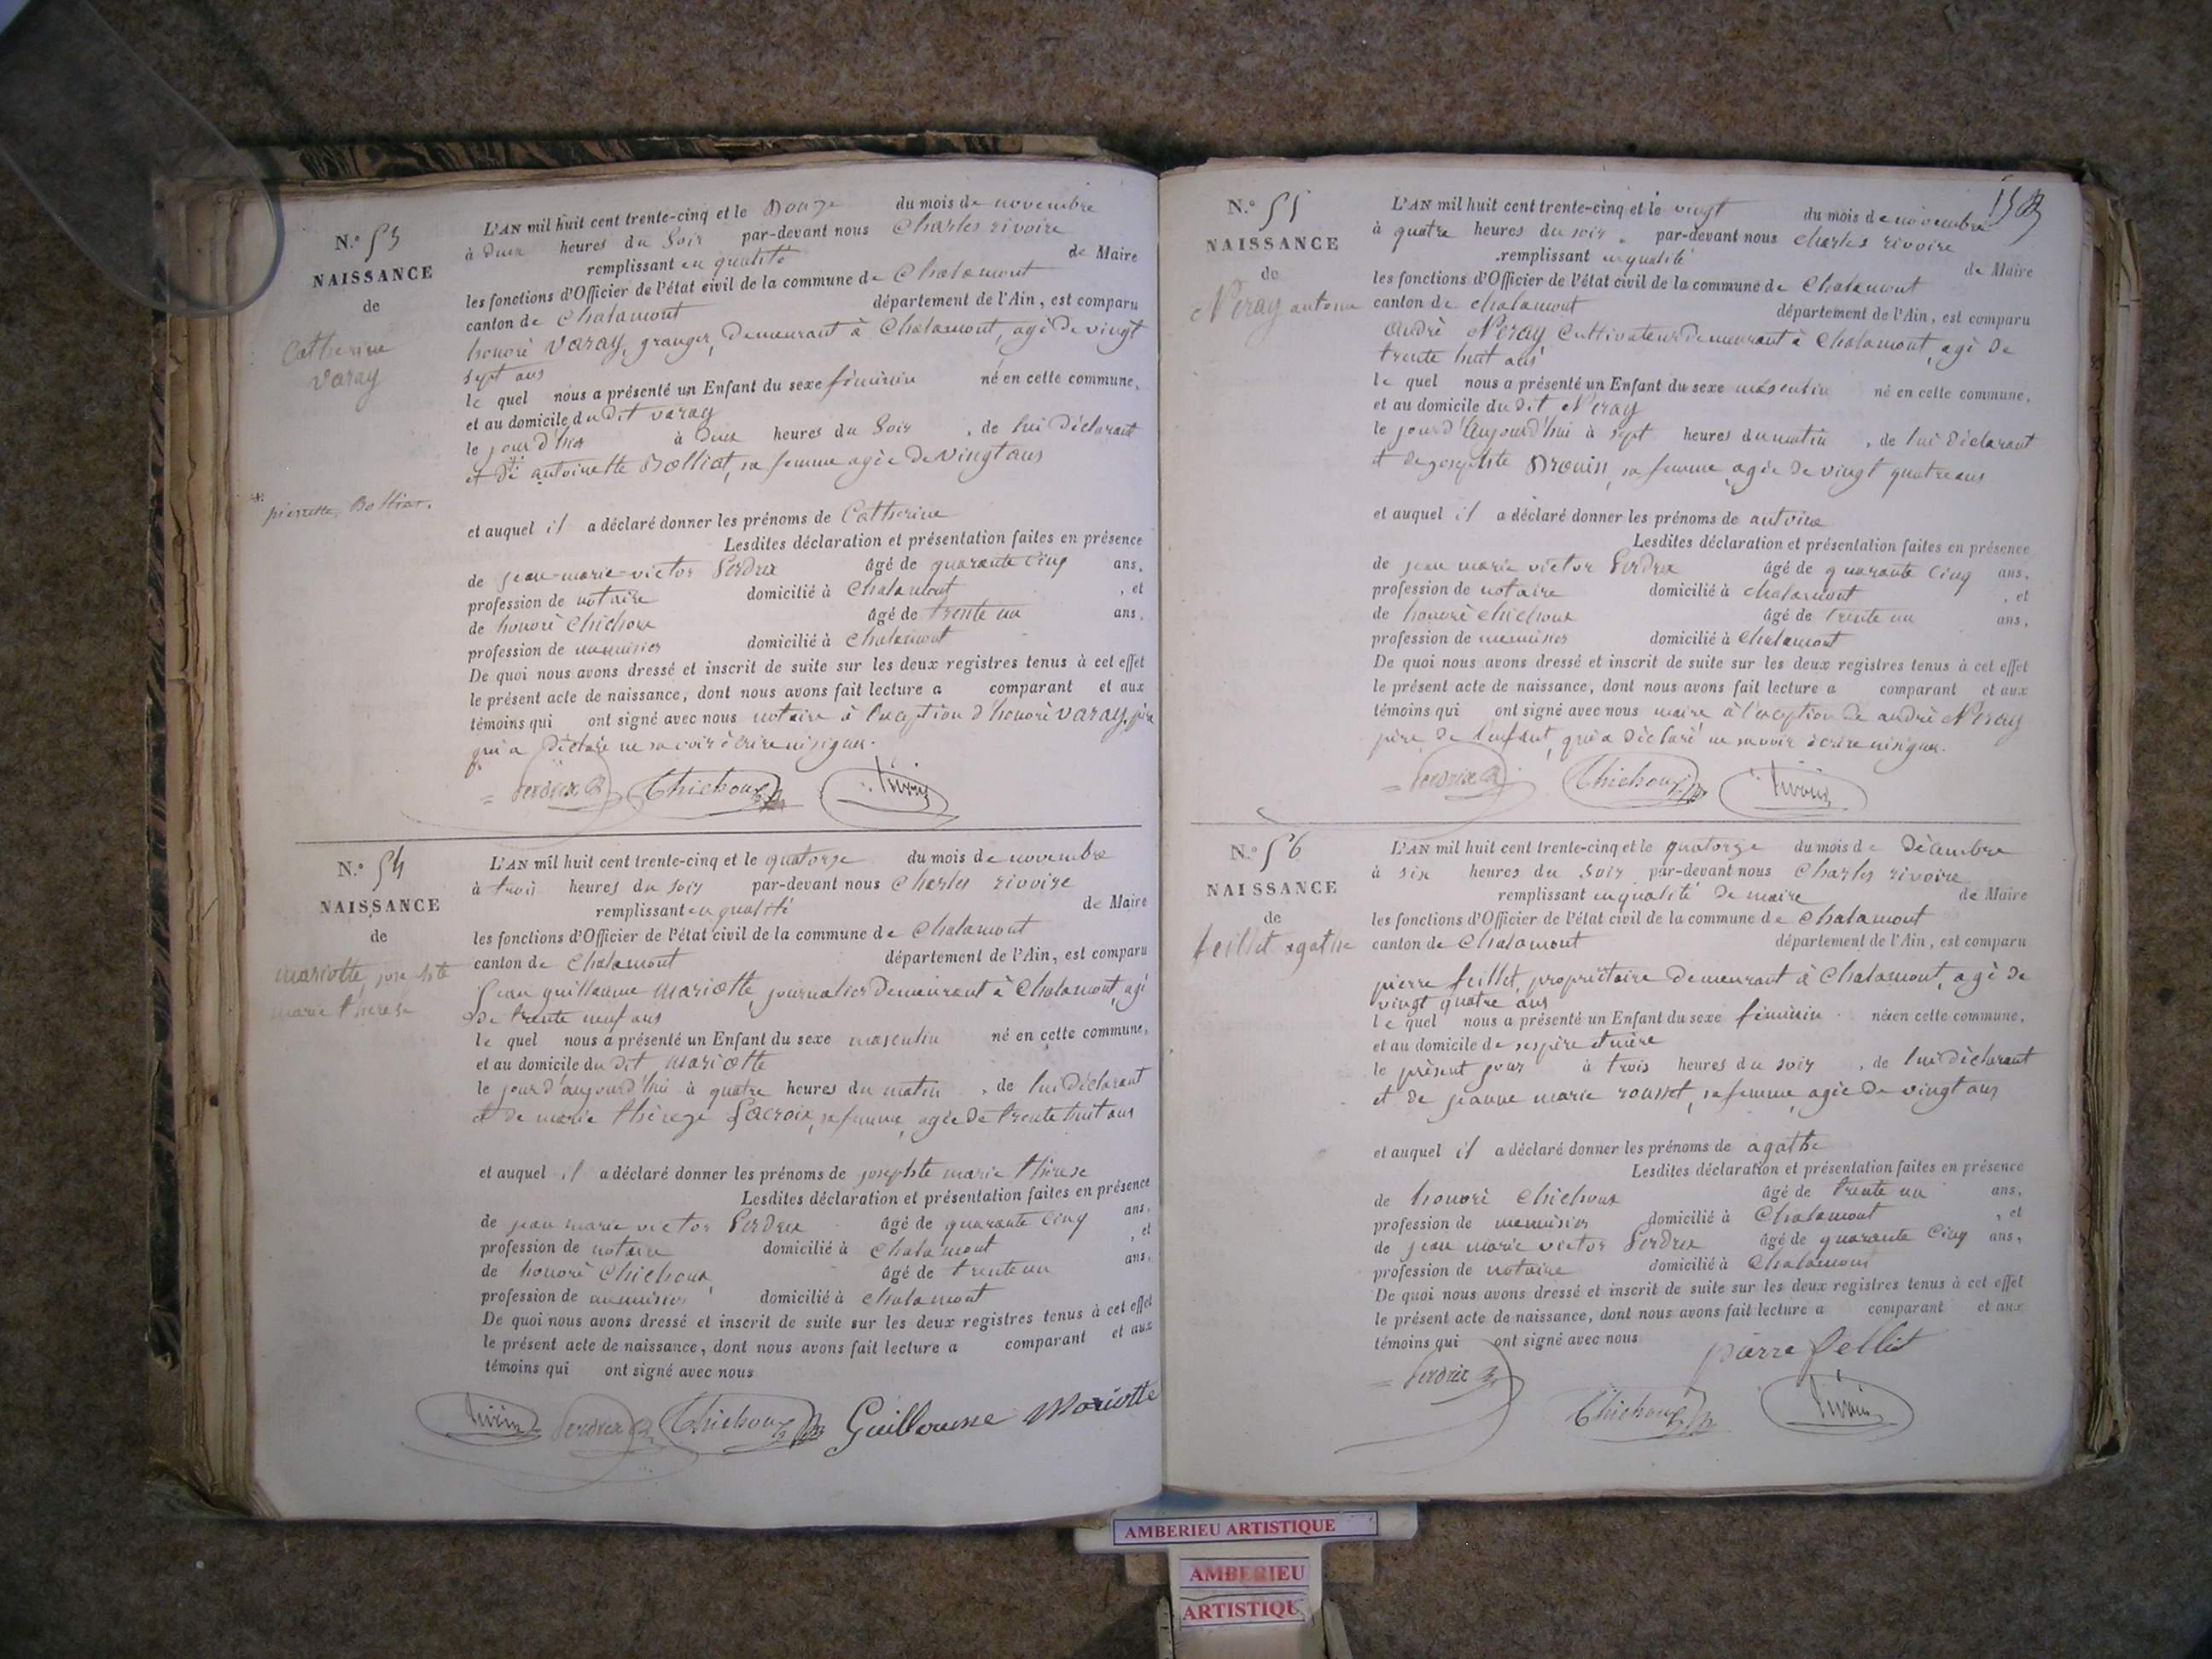 N.° 53
NAISSANCE
de
Catherine
Varay
* pierrette, Bolliat.
L'AN mil huit cent trente-cinq et le Douze du mois de novembre
à Deux heures du Soir par-devant nous Charles rivoire
remplissant en qualité de Maire
les fonctions d'Officier de l'état civil de la commune de Chalamont
canton de Chalamont département de l'Ain, est comparu
honoré Varay, granger, Demeurant à Chalamont, agé de vingt
sept ans
le quel nous a présenté un Enfant du sexe féminin né en cette commune,
et au domicile du Dit varay
le jour d'hier à Deux heures du Soir, de lui Déclarant
et De antoinette Bolliat, sa femme agée de Vingt ans
et auquel il a déclaré donner les prénoms de Catherine
Lesdites déclaration et présentation faites en présence
de jean-marie-victor Perdrix âgé de quarante Cinq ans,
profession de notaire domicilié à Chalamont, et
de honoré Chichoux âgé de trente un ans,
profession de menuisier domicilié à Chalamont
De quoi nous avons dressé et inscrit de suite sur les deux registres tenus à cet effet
le présent acte de naissance, dont nous avons fait lecture a comparant et aux
témoins qui ont signé avec nous notaire à l'exception d'honoré Varay, père
qui a Déclaré ne savoir écrire ni signer.
Perdrix Chichoux Rivoire
N.° 54
NAISSANCE
de
Mariotte, josephte
marie therese
L'AN mil huit cent trente-cinq et le quatorze du mois de novembre
à trois heures du soir par-devant nous Charles rivoire
remplissant en qualité de Maire
les fonctions d'Officier de l'état civil de la commune de Chalamont
canton de Chalamont département de l'Ain, est comparu
Jean guillaume Mariotte, journalier Demeurant à Chalamont, agé
De trente neuf ans
le quel nous a présenté un Enfant du sexe masculin né en cette commune,
et au domicile du Dit Mariotte
le jour d'aujourd'hui à quatre heures du matin, de lui Déclarant
et De marie thérèze Lacroix, sa femme, agée De trente huit ans
et auquel il a déclaré donner les prénoms de josephte marie thérese
Lesdites déclaration et présentation faites en présence
de jean marie victor Perdrix âgé de quarante Cinq ans,
profession de notaire domicilié à Chalamont, et
de honoré Chichoux âgé de trente un ans,
profession de menuisier domicilié à Chalamont
De quoi nous avons dressé et inscrit de suite sur les deux registres tenus à cet effet
le présent acte de naissance, dont nous avons fait lecture a comparant et aux
témoins qui ont signé avec nous
Rivoire Perdrix Chichoux Guillaume Mariotte
N.° 55
NAISSANCE
de
Néray antoine
L'AN mil huit cent trente-cinq et le vingt du mois de novembre
à quatre heures du soir par-devant nous Charles rivoire
remplissant en qualité de Maire
les fonctions d'Officier de l'état civil de la commune de Chalamont
canton de Chalamont département de l'Ain, est comparu
André Neray Cultivateur demeurant à Chalamont, agé De
trente huit ans
le quel nous a présenté un Enfant du sexe masculin né en cette commune,
et au domicile du Dit Neray
le jour d'Aujourd'hui à sept heures du matin, de lui Déclarant
et de josephte Drouin, sa femme, agée De vingt quatre ans
et auquel il a déclaré donner les prénoms de antoine
Lesdites déclaration et présentation faites en présence
de jean marie victor Perdrix âgé de quarante Cinq ans,
profession de notaire domicilié à Chalamont, et
de honoré Chichoux âgé de trente un ans,
profession de menuisier domicilié à Chalamont
De quoi nous avons dressé et inscrit de suite sur les deux registres tenus à cet effet
le présent acte de naissance, dont nous avons fait lecture a comparant et aux
témoins qui ont signé avec nous maire à l'exception de andré Neray
père De l'enfant, qui a Déclaré ne savoir écrire ni signer.
Perdrix Chichoux Rivoire
N.° 56
NAISSANCE
de
feillet agathe
L'AN mil huit cent trente-cinq et le quatorze du mois de Décembre
à six heures du Soir par-devant nous Charles rivoire
remplissant en qualité De maire de Maire
les fonctions d'Officier de l'état civil de la commune de Chalamont
canton de Chalamont département de l'Ain, est comparu
pierre feillet, propriétaire Demeurant à Chalamont, agé De
vingt quatre ans
le quel nous a présenté un Enfant du sexe féminin né en cette commune,
et au domicile de ses père et mère
le présent jour à trois heures du soir, de lui Déclarant
et De jeanne marie rousset, sa femme, agée De vingt ans
et auquel il a déclaré donner les prénoms de agathe
Lesdites déclaration et présentation faites en présence
de honoré Chichoux âgé de trente un ans,
profession de menuisier domicilié à Chalamont, et
de jean marie victor Perdrix âgé de quarante Cinq ans,
profession de notaire domicilié à Chalamont
De quoi nous avons dressé et inscrit de suite sur les deux registres tenus à cet effet
le présent acte de naissance, dont nous avons fait lecture a comparant et aux
témoins qui ont signé avec nous
pierre fellit
Perdrix Chichoux Rivoire
AMBERIEU ARTISTIQUE
AMBERIEU
ARTISTIQU